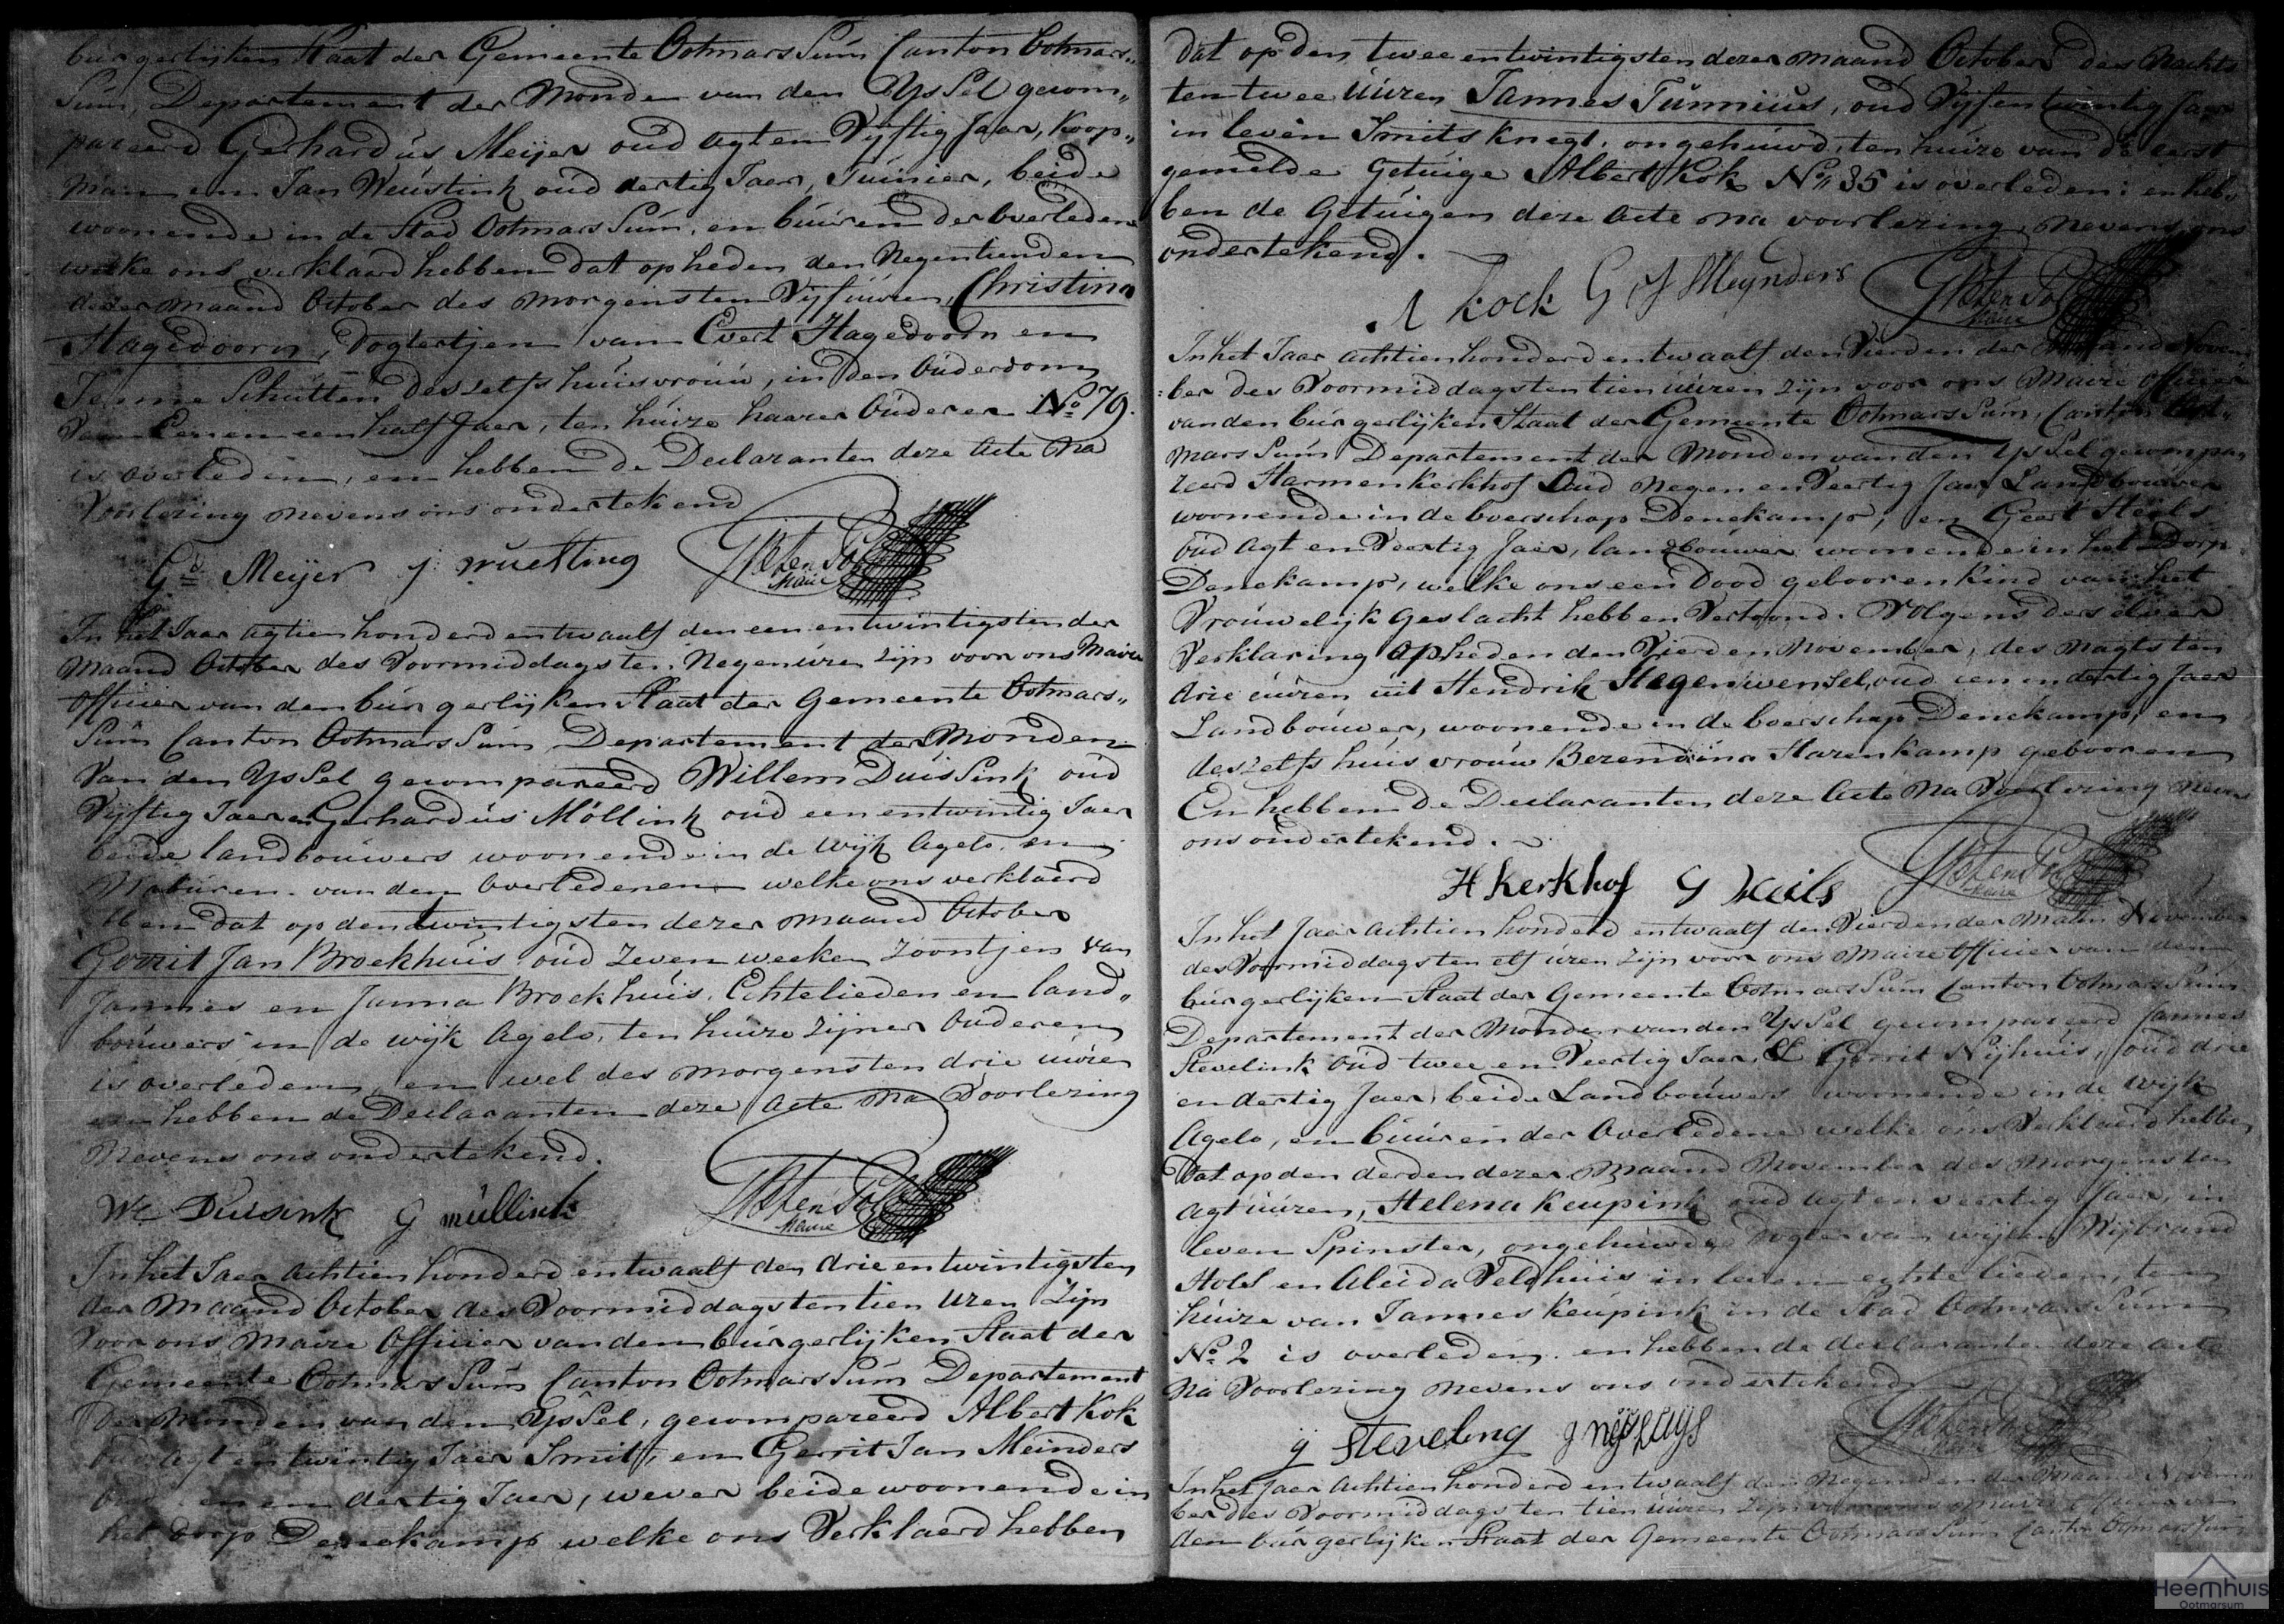 burgerlijken Staat der Gemeente OotmarsSum Canton Ootmars„
Sum, Departement der Monden van den YsSel gecom„
pareerd Gerhardus Meijer oud agt en Vyftig Jaar, Koop„
man en Jan Weustink oud dertig Jaer, Tuinier, beide
woonende in de Stad OotmarsSum, en buuren der overledene
welke ons verklaard hebben dat op heden den Negentienden
dezer maand October des morgens ten Vyf uuren, Christina
Hagedoorn, Dogtertjen van Evert Hagedoorn en
Jenne Schutten deszelfs huisvrouw, in den Ouderdom
van Een en een half Jaer, ten huize haarer Ouderen No 79.
is overleden, en hebben de Declaranten deze Acte na
Voorlezing nevens ons ondertekend
Gd Meijer J wuesting GKten Pol
Maire
In het Jaar agtien honderd en twaalf den een en twintigsten der
Maand October des Voormiddags ten Negen uren zijn voor ons Maire
Officier van den burgerlijken Staat der Gemeente Ootmars„
Sum Canton OotmarsSum Departement der Monden
Van den YsSel gecompareerd Willem DuisSink oud
Vyftig Jaer en Gerhardus Möllink oud een en twintig Jaer
beide landbouwers woonende in de wijk Agelo en
Naburen van den Overledenen welke ons verklaerd
hebben dat op den twintigsten dezer maand October
Gerrit Jan Broekhuis oud zeven weeken Zoontjen van
Jannes en Janna Broekhuis, Echtelieden en land„
bouwers in de wijk Agelo, ten huize zijner Ouderen
is overleden, en wel des morgens ten drie uuren
en hebben de Declaranten deze Acte na Voorlezing
Nevens ons ondertekend.
Wm Duisink G mullink GKten Pol
Maire
In het Jaer achtien honderd en twaalf den drie en twintigsten
der Maand October des Voormiddags ten tien Uren zijn
Voor ons Maire Officier van den burgerlijken Staat der
Gemeente OotmarsSum Canton OotmarsSum Departement
der Monden van den YsSel, gecompareerd Albert Kok
oud agt en twintig Jaer Smit, en Gerrit Jan Meinders
oud en dertig Jaer, wever beide woonende in
het dorp Denekamp welke ons Verklaerd hebben
dat op den twee en twintigsten dezer maand October des Nachts
ten twee Uuren Jannes Tunnius, oud Vyf en twintig Jaer
in leven Smits Knegt, ongehuwd, ten huize van de eerst
gemelde Getuige Albert Kok No 35 is overleden: en heb„
ben de Getuigen deze Acte na voorlezing, nevens ons
ondertekend.
A Kock G J Meynders GKten Pol
Maire
In het Jaar achtien honderd en twaalf den Vierden der Maand Novem
„ber des Voormiddags ten tien uuren zijn voor ons Maire Officier
van den burgerlijken Staat der Gemeente OotmarsSum, Canton Oot„
marsSum Departement der Monden van den YsSel gecompa„
reerd Harmen Kerkhof Oud Negen en Veertig Jaer, Landbouwer
woonende in de boerschap Denekamp, en Geert Heels
oud agt en Veertig Jaer, landbouwer woonende in het Dorp
Denekamp, welke ons een Dood gebooren Kind van het
Vrouwelijk Geslacht hebben Vertoond. Volgens derselver
Verklaring op heden den Vierden November, des nagts ten
drie uuren uit Hendrik Stegenwensel, oud een en dertig Jaer
Landbouwer, woonende in de boerschap Denekamp, en
deszelfs huisvrouw Berendina Harenkamp gebooren
En hebben de Declaranten deze Acte na Voorlezing nevens
ons ondertekend.
H Kerkhof G heils GKten Pol
Maire
In het Jaer achtien honderd en twaalf den Vierden der Maan November
des Voormiddags ten elf uren zijn voor ons Maire Officier van den
burgerlijken Staat der Gemeente OotmarsSum Canton OotmarsSum
Departement der Monden van den YsSel gecompareerd Jannes
Stevelink oud twee en Veertig Jaer, & Gerrit Nijhuis, oud drie
en dertig Jaer, beide Landbouwers woonende in de wijk
Agelo, en buuren der Overledene welke ons Verklaerd hebben
dat op den derden dezer Maand November des Morgens ten
agt uuren, Helena Keupink oud agt en veertig Jaer, in
leven Spinster, ongehuwde Dogter van wijlen Wijbrand
Hols en Aleida Veldhuis in leven echtelieden, ten
huize van Jannes Keupink in de Stad OotmarsSum
No 2 is overleden. en hebben de declaranten deze acte
na Voorlezing nevens ons ondertekend
J steveling g nijhuys GKten Pol
Maire
In het Jaer achtien honderd en twaalf den Negenden der Maand Novem
ber des Voormiddags ten tien uuren zijn voor ons
den burgerlijken Staat der Gemeente OotmarsSum Canton OotmarsSum
Heemhuis
Ootmarsum